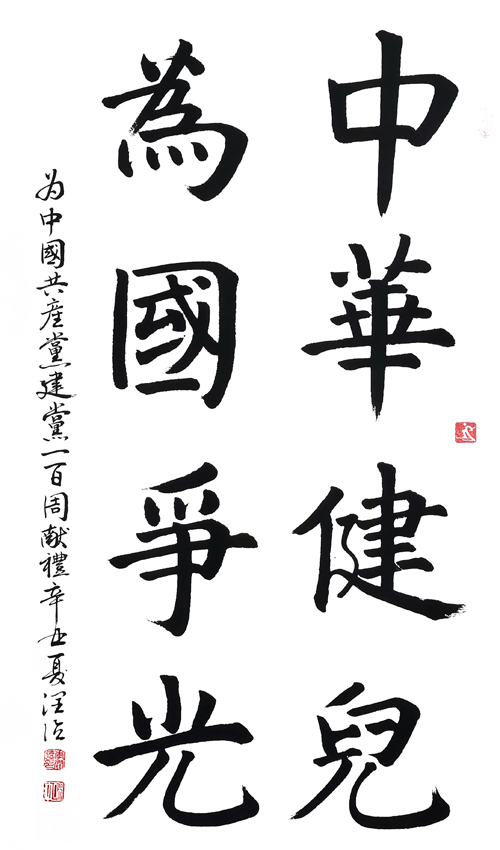 中華健兒
為國爭光
为中國共産黨建黨一百周献禮辛丑夏